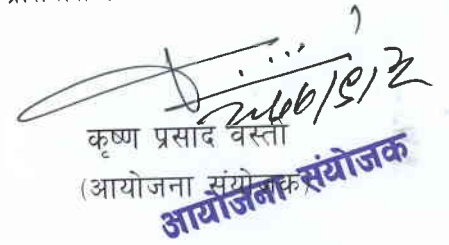 कृष्ण प्रसाद वस्ती
(आयोजना संयोजक)
आयोजना संयोजक